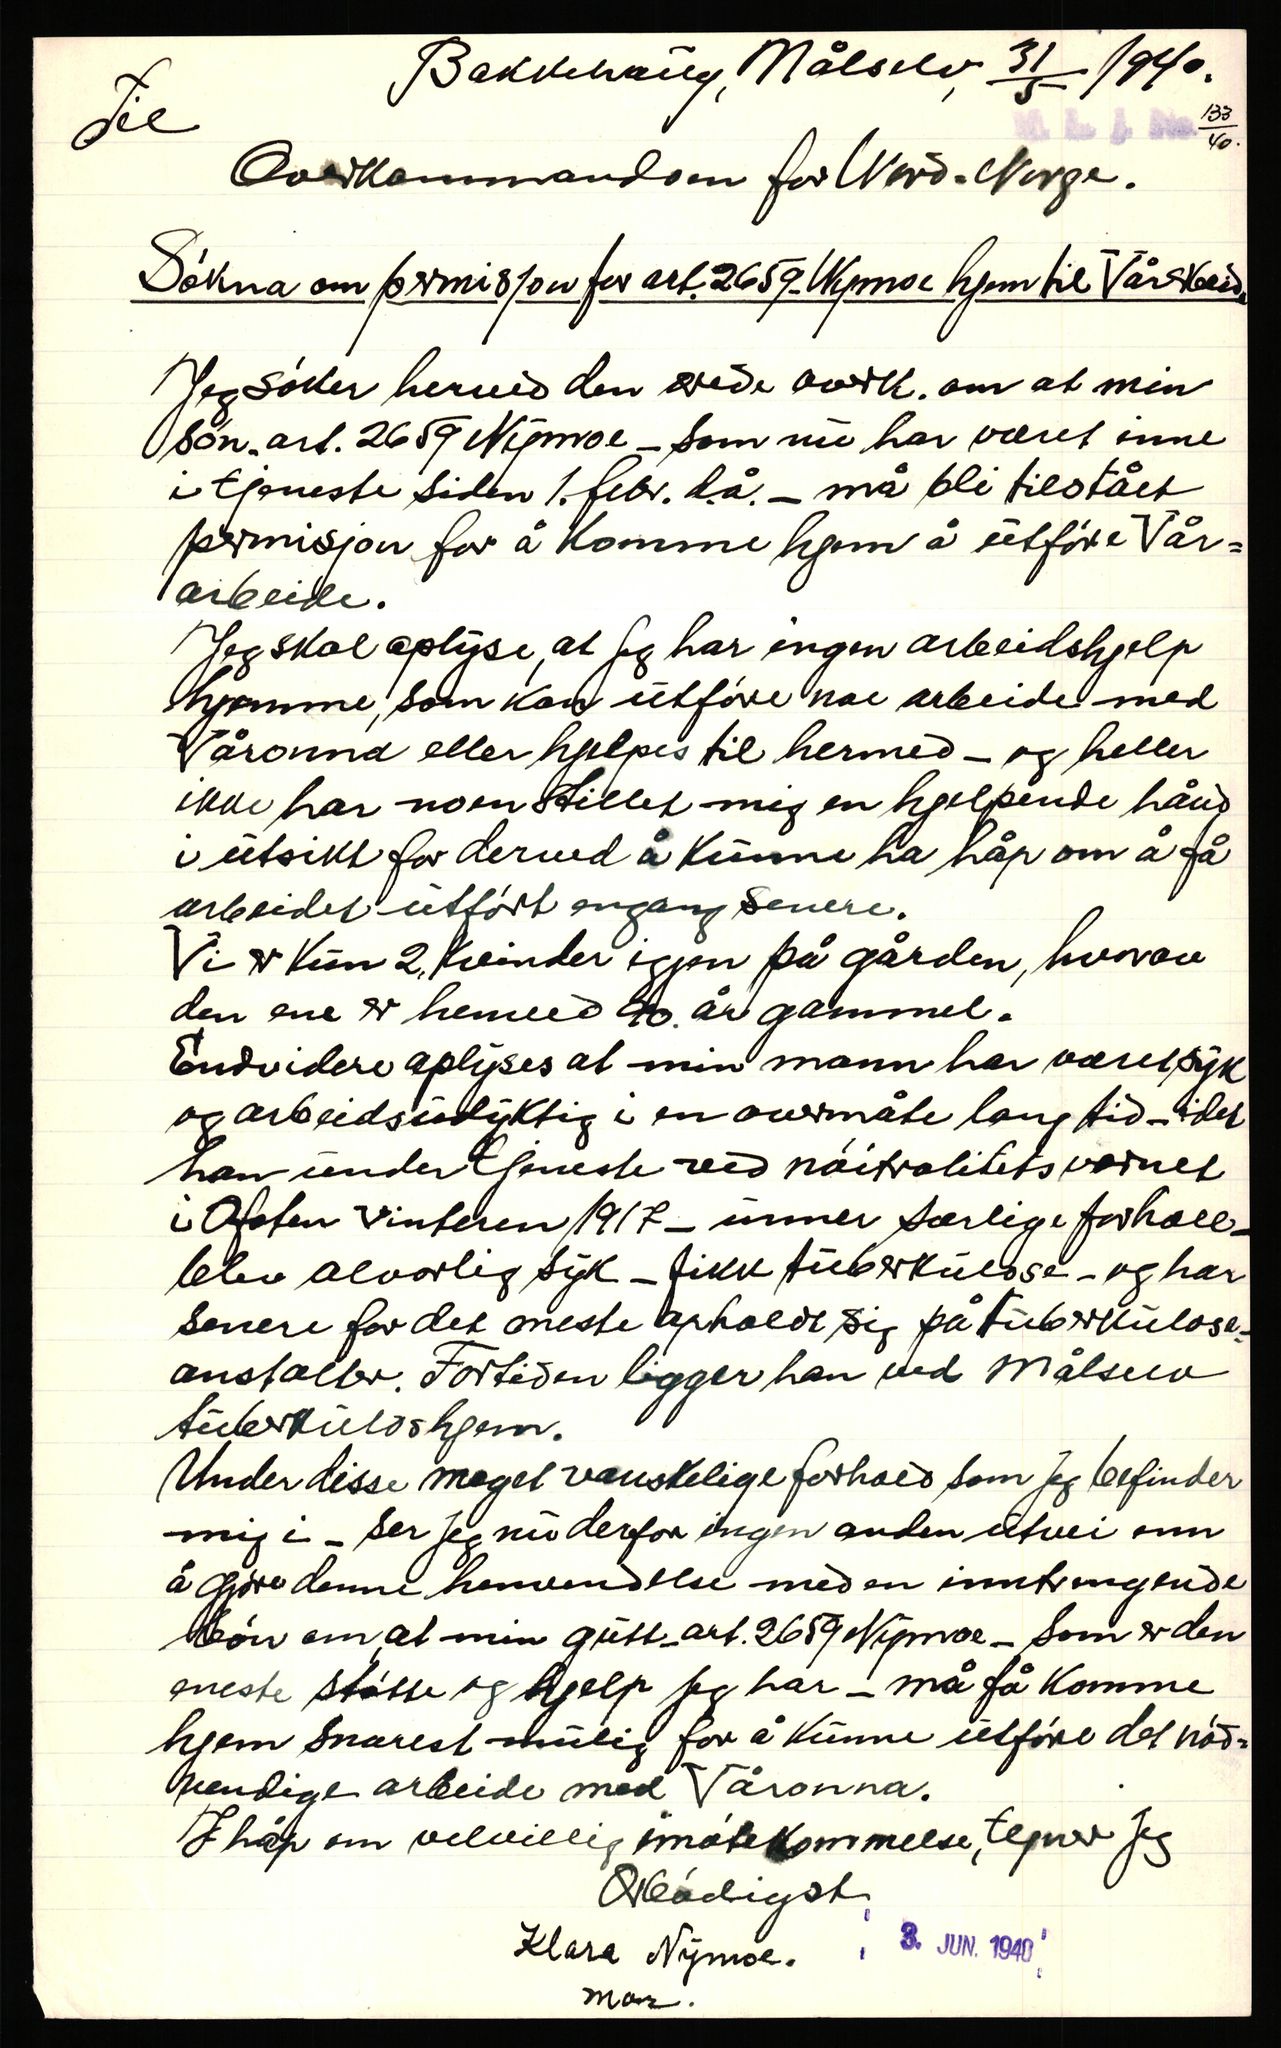 Bakkehaug, Målselv, 31/5 1940.
Til
133/40.
Overkommandoen for Nord-Norge.
Søkna om permisjon for art. 2659 Nymoe hjem til Vårarbeid.
Jeg søker herved den ærede overk. om at min
søn - art. 2659 Nymoe - som nu har været inne
i tjeneste siden 1. febr. d.å. - må bli tilstået
permisjon for å komme hjem å utføre Vår=
arbeide.
Jeg skal oplyse, at jeg har ingen arbeidshjelp
hjemme, som kan utføre noe arbeide med
Våronna eller hjelpes til hermed - og heller
ikke har noen stillet mig en hjelpende hånd
i utsikt for derved å kunne ha håp om å få
arbeidet utført engang senere.
Vi er kun 2, kvinder igjen på gården, hvorav
den ene er henved 90. år gammel.
Endvidere oplyses at min mann har været syk
og arbeidsudyktig i en overmåte lang tid - idet
han under tjeneste ved nøitralitetsvernet
i Ofoten vinteren 1917 - unner særlige forhold -
blev alvorlig syk - fikk tuberkulose - og har
senere for det meste opholdt sig på tuberkulose=
anstalter. Fortiden ligger han ved Målselv
tuberkuloshjem.
Under disse meget vanskelige forhold som jeg befinder
mig i - ser jeg nu derfor ingen anden utvei enn
å gjøre denne henvendelse med en inntrengende
bøn om, at min gutt - art. 2659 Nymoe - som er den
eneste støtte og hjelp jeg har - må få komme
hjem snarest mulig for å kunne utføre det nød=
vendige arbeide med Våronna.
I håp om velvillig imøtekommelse, tegner jeg
Ærbødigst
Klara Nymoe.
3. JUN. 1940
mor.